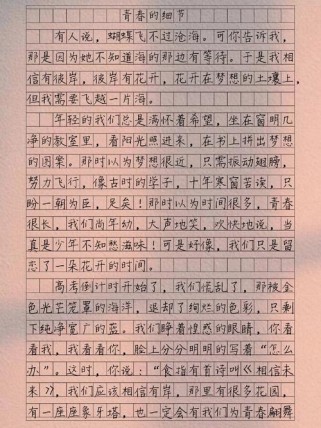 青春的细节
有人说，蝴蝶飞不过沧海。可你告诉我，
那是因为她不知道海的那边有等待。于是我相
信有彼岸，彼岸有花开，花开在梦想的土壤上，
但我需要飞越一片海。
年轻的我们总是满怀着希望，坐在窗明几
净的教室里，看阳光照进来，在书上拼出梦想
的图案。那时以为梦想很近，只需振动翅膀，
努力飞行，像古时的学子，十年寒窗苦读，只
盼一朝为臣，足矣！那时以为时间很多，青春
很长，我们尚年幼，大声地笑，欢快地说，当
真是少年不知愁滋味！可是好像，我们只是留
恋了一朵花开的时间。
高考倒计时开始了，我们慌乱了，那被金
色光芒笼罩的海洋，退却了绚烂的色彩，只剩
下纯净宽广的蓝。我们睁着惶惑的眼睛，你看
看我，我看看你，脸上分分明明的写着“怎么
办”。这时，你说：“食指有首诗叫《相信未
来》，我们应该相信有岸，那里有很多花园，
有一座座象牙塔，也一定会有我们为青春翩舞